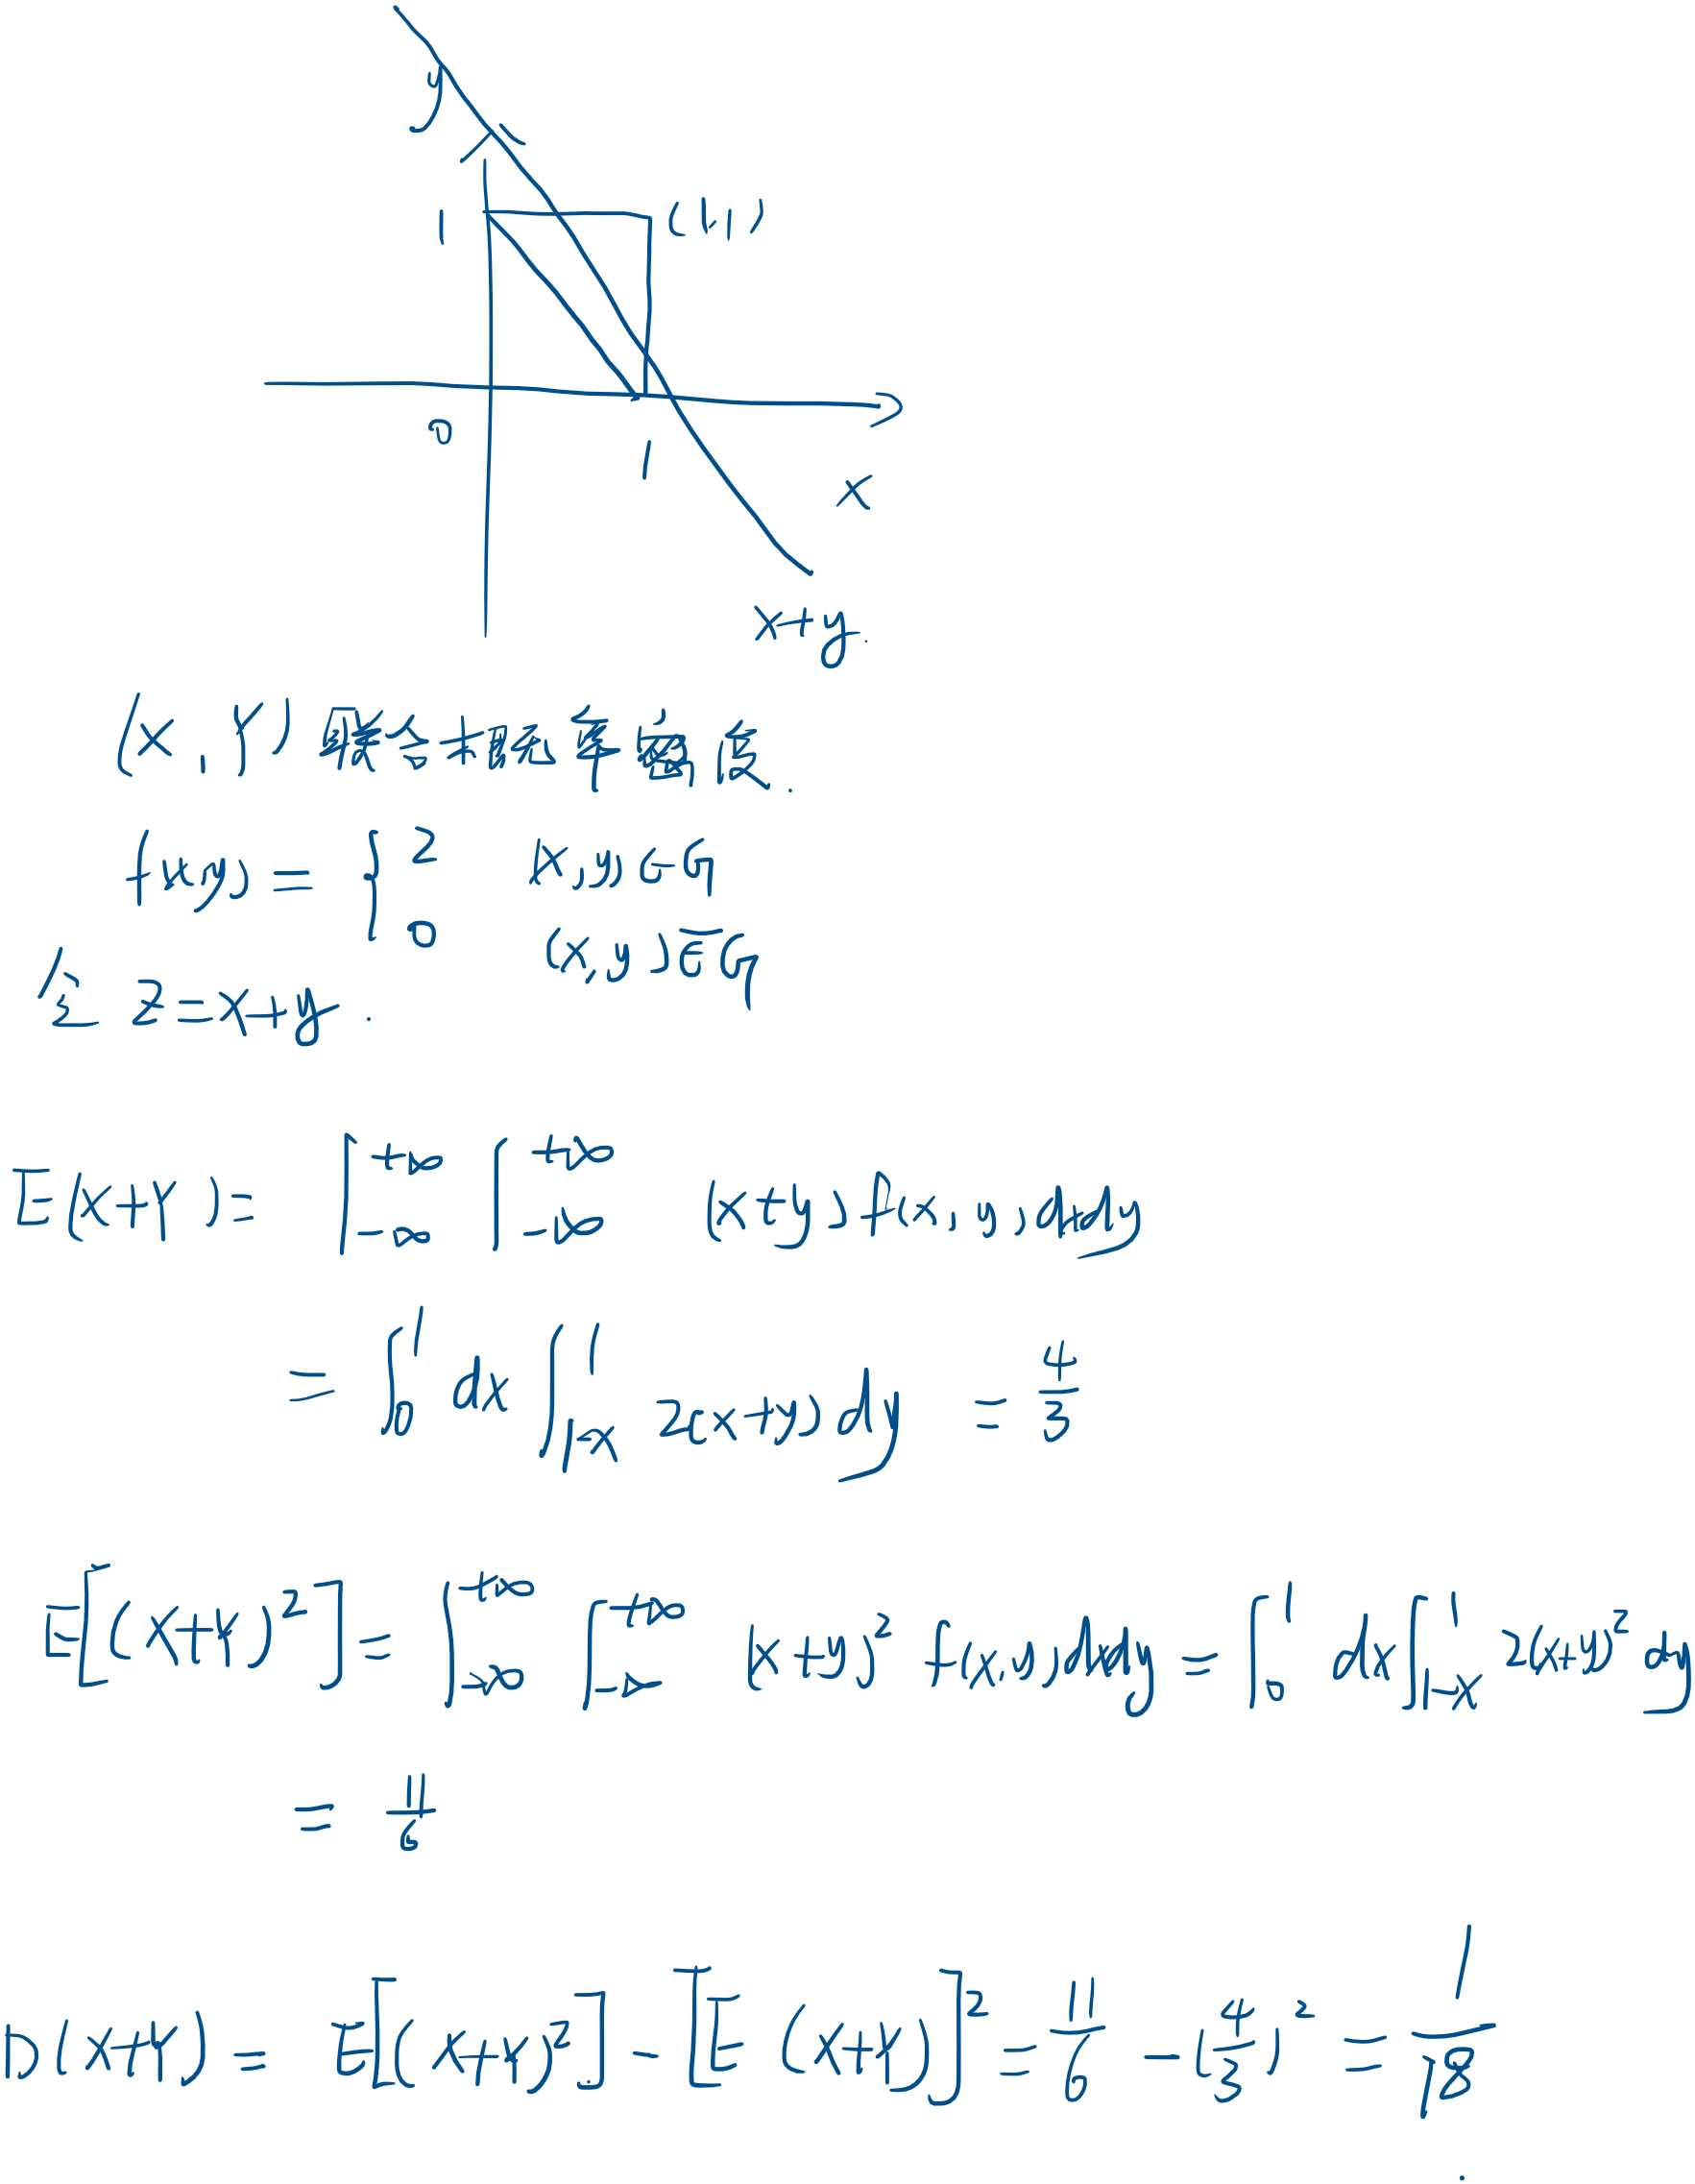 y
1
(1,1)
0
1
x
x+y.
(X,Y)联合概率密度.
f(x,y)= { 2 (x,y)∈G
0 (x,y)∉G
令 Z=X+Y.
E(X+Y)= ∫_{-∞}^{+∞} ∫_{-∞}^{+∞} (x+y)f(x,y)dxdy
= ∫_0^1 dx ∫_{1-x}^1 2(x+y)dy = 4/3
E[(X+Y)²]= ∫_{-∞}^{+∞} ∫_{-∞}^{+∞} (x+y)² f(x,y)dxdy = ∫_0^1 dx ∫_{1-x}^1 2(x+y)² dy
= 11/6
D(X+Y)= E[(X+Y)²] - [E(X+Y)]² = 11/6 - (4/3)² = 1/18